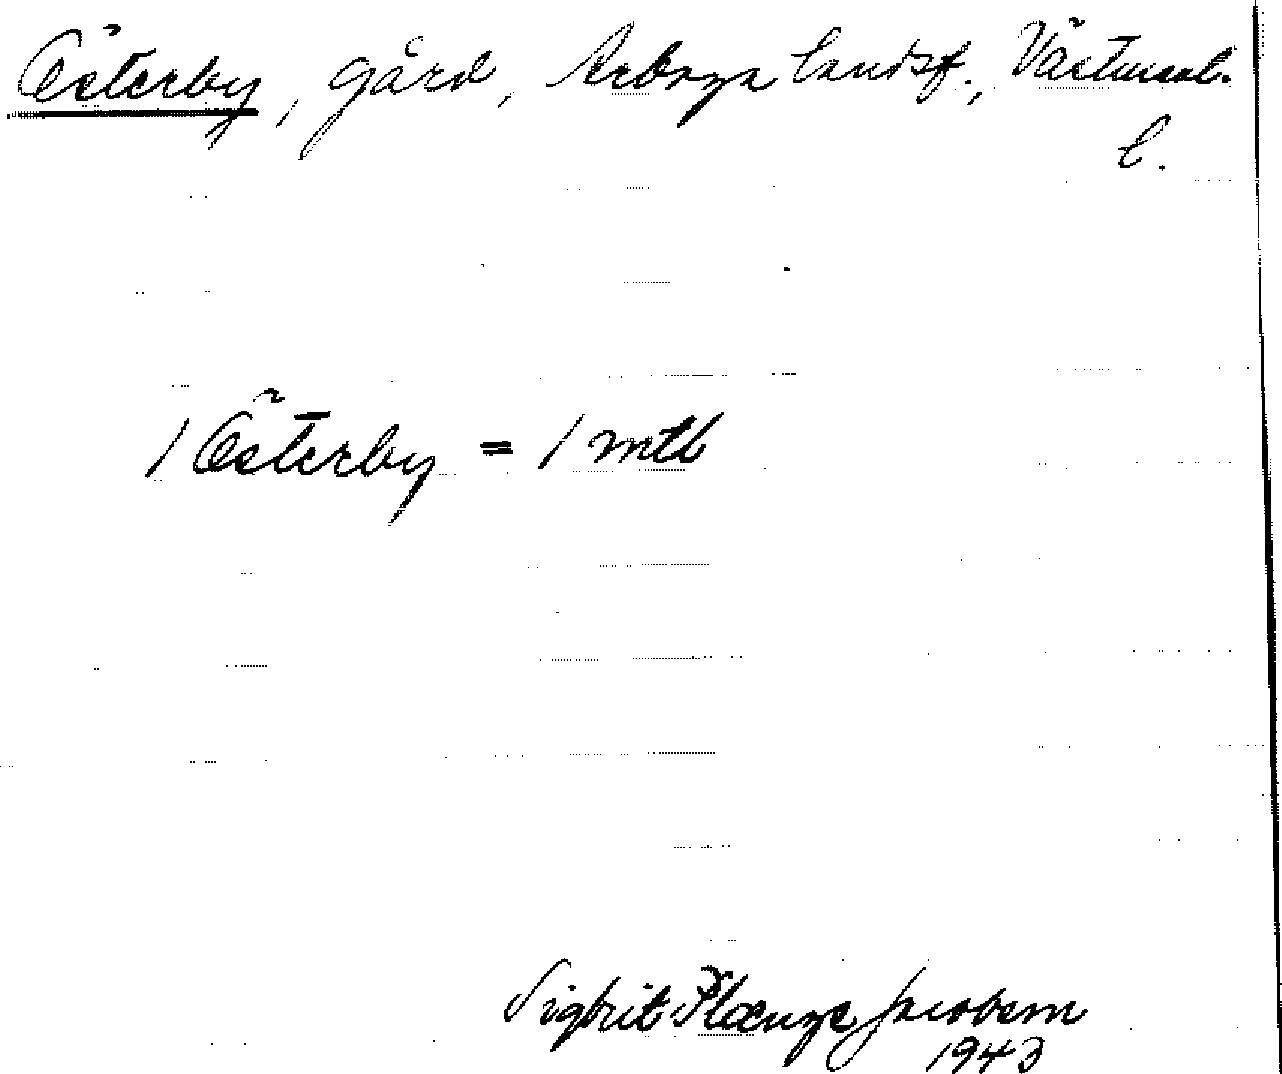 Österby, gård, Arboga landsf., Västmanl.
l.
1 Österby = 1 mtl
Sigbrit Plænge Jacobson
1943